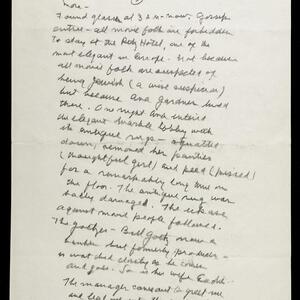 more -
Found glasses at 3 A.M. - now. Gossip
entire - all movie folk are forbidden
to stay at the Ritz Hotel, one of the
most elegant in Europe. Not because
all movie folk are suspected of
being Jewish (a wise suspicion)
but because Ava Gardner lived
there. One night Ava entered
the elegant marble lobby with
its antique rugs - squatted
down, removed her panties
(thoughtful girl) and peed (pissed)
for a remarkably long time on
the floor. The antique rug was
badly damaged. The
against movie people followed.
The - Bill now a
but formerly producer -
is watched closely as he comes
and goes. So is his wife
The manager consent to greet me
and